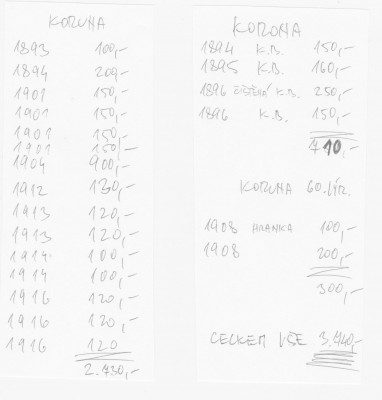 KORUNA
1893 100,-
1894 200,-
1901 150,-
1901 150,-
1901 150,-
1901 150,-
1904 900,-
1912 130,-
1913 120,-
1913 120,-
1914 100,-
1914 100,-
1916 120,-
1916 120,-
1916 120
2.730,-
KORONA
1894 K.B. 150,-
1895 K.B. 160,-
1896 K.B. 250,-
1896 K.B. 150,-
710,-
KORUNA 60.VÍR.
1908 HRANKA 100,-
1908 200,-
300,-
CELKEM VŠE 3.740,-